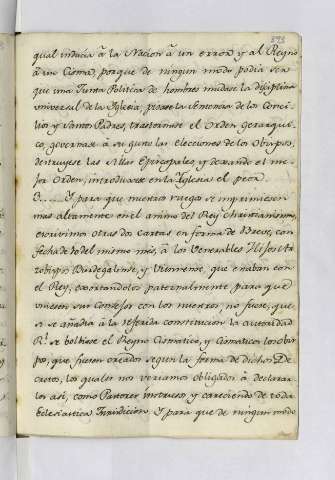 393
qual inducia à la Nacion à un error, y al Reyno
à un Cisma, porque de ningun modo podia ser
que una Junta Politica de hombres mudase la disciplina
universal de la Iglesia, pisase la Sentencia de los Conci-
lios y Santos Padres, trastornase el Orden gerarqui-
co, governase à su gusto las elecciones de los Obispos,
destruyese las Sillas Episcopales, y dexando el me-
jor Orden, introduxese en la Iglesia el peor.
3. Y para que nuestros ruegos se imprimiesen
mas altamente en el animo del Rey Christianisimo,
escrivimos otras dos cartas en forma de Breve, con
fecha de 10 del mismo mes, à los Venerables Hijos Ar-
zobispos Burdegalense, y Vienense, que estaban con
el Rey, exortandolos paternalmente para que
uniesen sus Consejos con los nuestros, no fuese, que
si se añadia à la referida constitucion la autoridad
Rl. se bolbiese el Reyno Cismatico, y Cismaticos los Obis-
pos, que fuesen creados segun la forma de dichos De-
cretos, los quales nos veriamos obligados à declarar-
los asi, como Pastores intrusos, y careciendo de toda
Eclesiastica Jurisdicion. Y para que de ningun modo